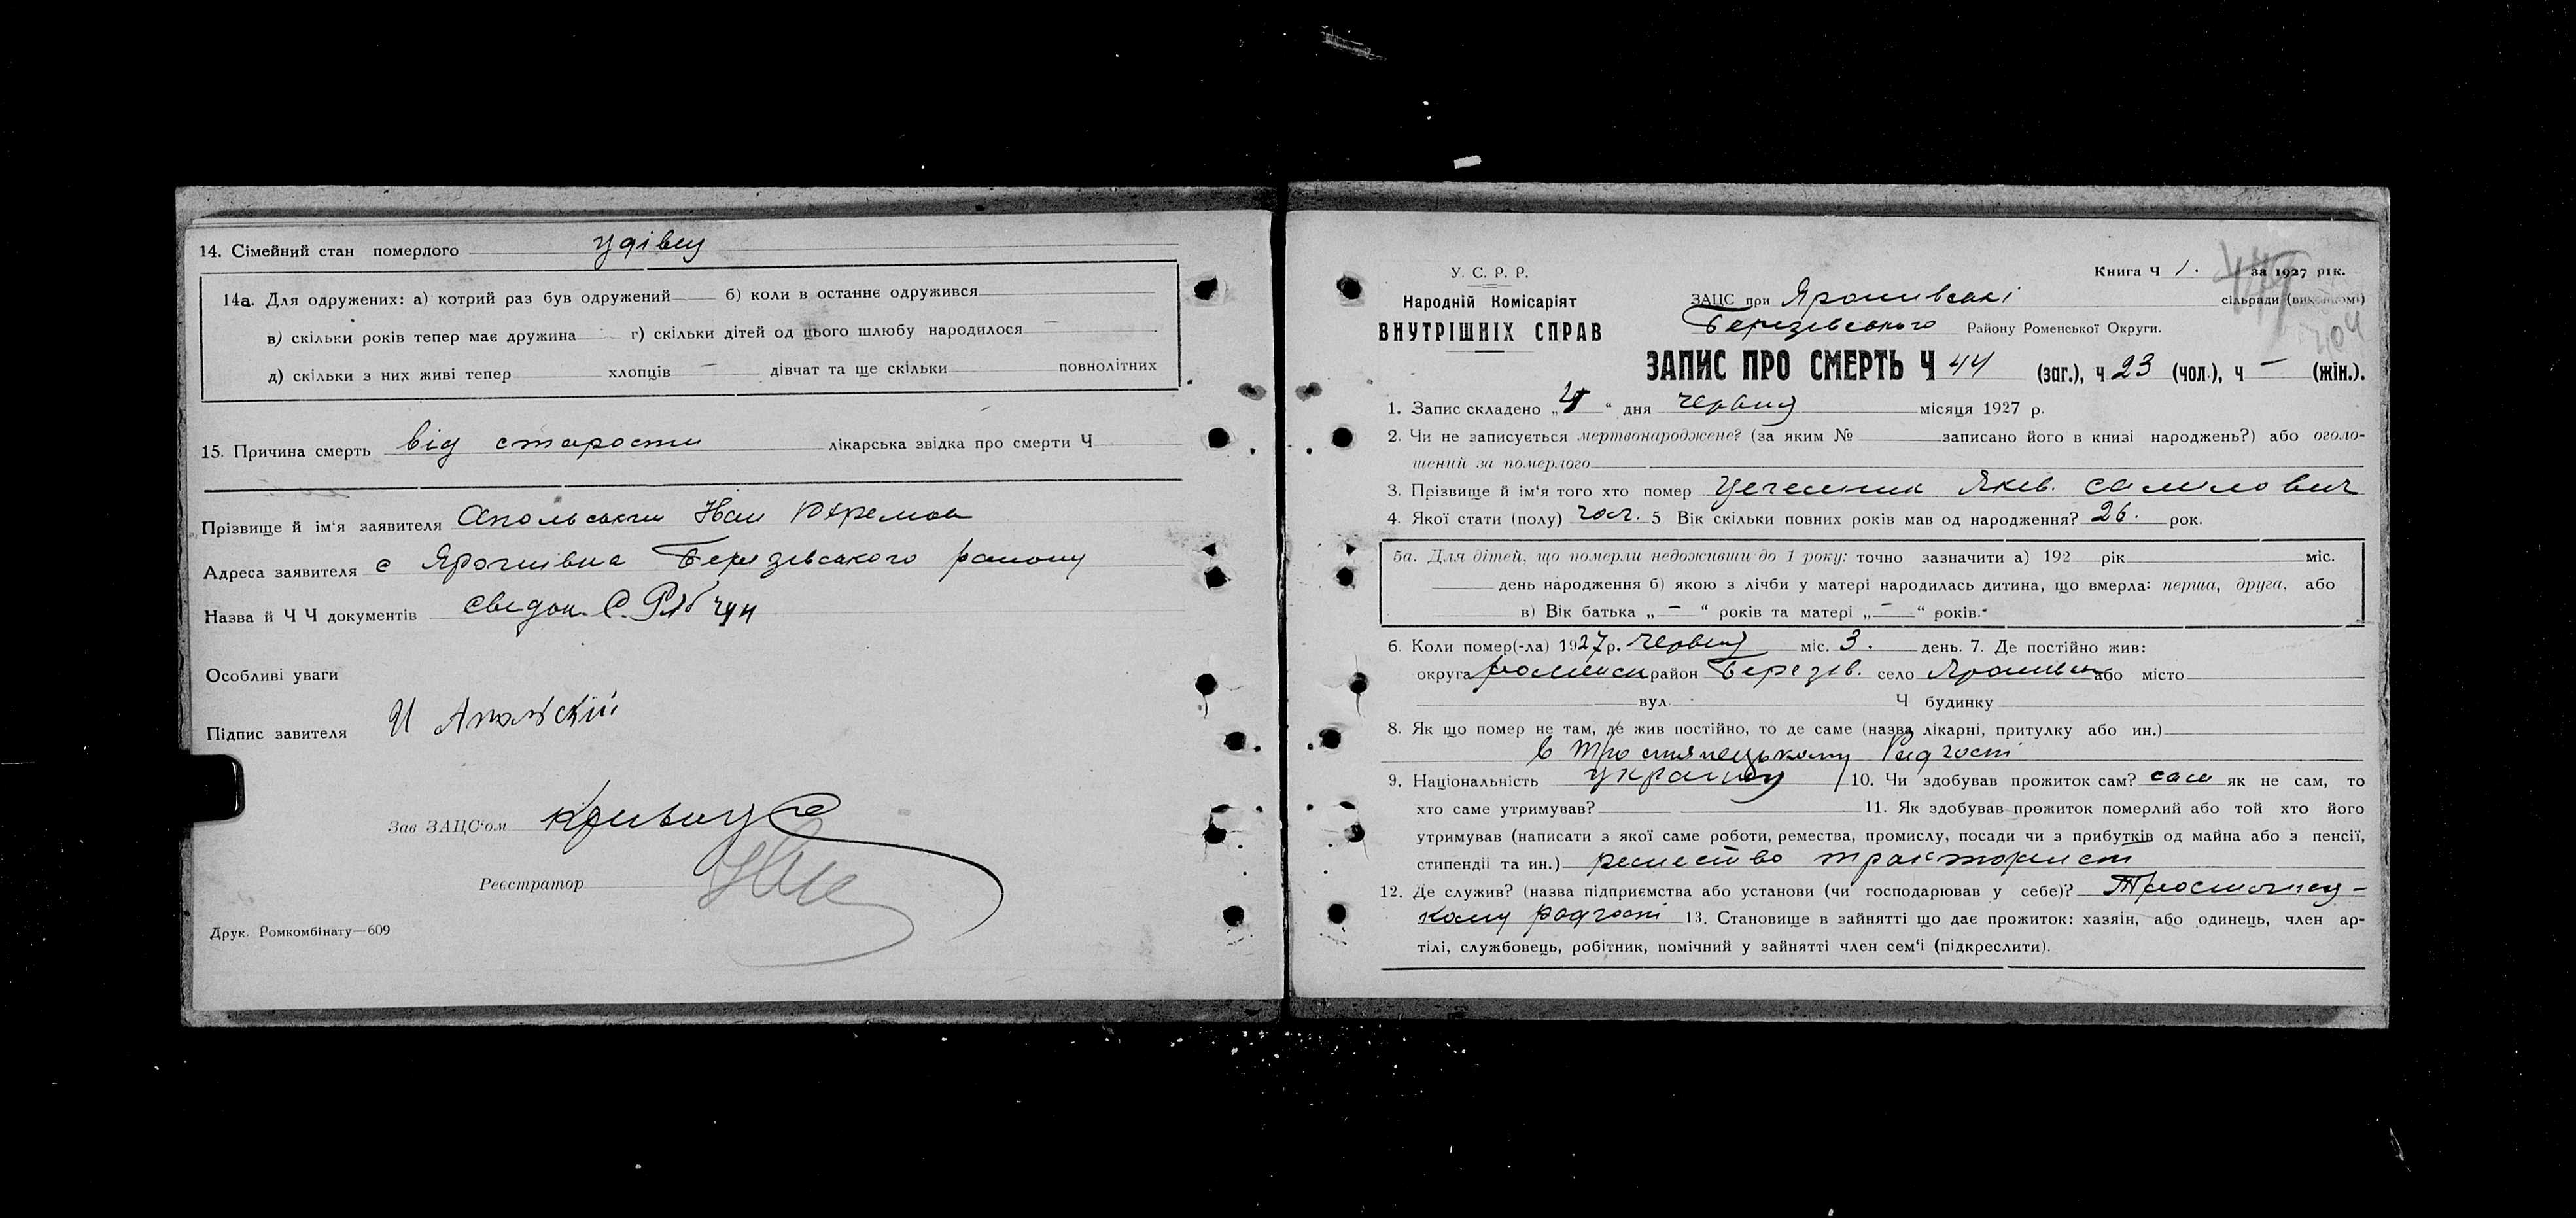 14. Сімейний стан померлого удівец
14а. Для одружених: а) котрий раз був одружений б) коли в останнє одружився
в) скільки років тепер має дружина г) скільки дітей од цього шлюбу народилося —
д) скільки з них живі тепер хлопців — дівчат та ще скільки повнолітних
15. Причина смерть від старости лікарська звідка про смерти Ч
Прізвище й ім'я заявителя Апольський Іван
Адреса заявителя с Ярошівка Березівського району
Назва й Ч Ч документів С.
Особливі уваги
Підпис завителя И Апольскій
Зав ЗАЦС'ом
Реєстратор
Друк. Ромкомбінату—609
У. С. Р. Р.
Народній Комісаріят
ВНУТРІШНІХ СПРАВ
Книга Ч 1. за 1927 рік.
ЗАЦС при Ярошивські сільради (виконкомі)
Березівського Району Роменської Округи.
ЗАПИС ПРО СМЕРТЬ Ч 44 (заг.), ч 23 (чол.), ч — (жін.).
1. Запис складено „4“ дня червня місяця 1927 р.
2. Чи не записується мертвонароджене? (за яким № записано його в книзі народжень?) або оголо-
шений за померлого
3. Прізвище й ім'я того хто помер Яків. Самилович
4. Якої стати (полу) чол. 5 Вік скільки повних років мав од народження? 26. рок.
5а. Для дітей, що померли недоживши до 1 року: точно зазначити а) 192 рік міс.
день народження б) якою з лічби у матері народилась дитина, що вмерла: перша, друга, або
в) Вік батька „—“ років та матері „—“ років.
6. Коли помер(-ла) 1927р. червня міс. 3. день. 7. Де постійно жив:
округа район Березів. село Ярошивка або місто
вул. Ч будинку
8. Як що помер не там, де жив постійно, то де саме (назва лікарні, притулку або ин.)
в Тростянецькому Радгоспі
9. Національність українец 10. Чи здобував прожиток сам? сам як не сам, то
хто саме утримував? 11. Як здобував прожиток померлий або той хто його
утримував (написати з якої саме роботи, ремества, промислу, посади чи з прибутків од майна або з пенсії,
стипендії та ин.) ремество тракторист
12. Де служив? (назва підприємства або установи (чи господарював у себе)? Тростянец-
кому радгоспі 13. Становище в зайнятті що дає прожиток: хазяїн, або одинець, член ар-
тілі, службовець, робітник, помічний у зайнятті член сем'ї (підкреслити).